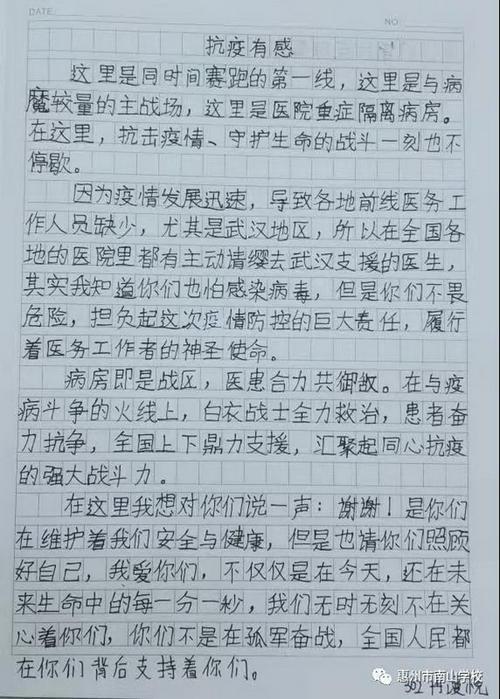 DATE
NO
抗疫有感
这里是同时间赛跑的第一线，这里是与病
魔较量的主战场，这里是医院重症隔离病房。
在这里，抗击疫情、守护生命的战斗一刻也不
停歇。
因为疫情发展迅速，导致各地前线医务工
作人员缺少，尤其是武汉地区，所以在全国各
地的医院里都有主动请缨去武汉支援的医生，
其实我知道你们也怕感染病毒，但是你们不畏
危险，担负起这次疫情防控的巨大责任，履行
着医务工作者的神圣使命。
病房即是战区，医患合力共御敌。在与疫
病斗争的火线上，白衣战士全力救治，患者奋
力抗争，全国上下鼎力支援，汇聚起同心抗疫
的强大战斗力。
在这里我想对你们说一声：谢谢！是你们
在维护着我们安全与健康，但是也请你们照顾
好自己，我爱你们，不仅仅是在今天，还在未
来生命中的每一分一秒，我们无时无刻不在关
心着你们，你们不是在孤军奋战，全国人民都
在你们背后支持着你们。
惠州市南山学校
302